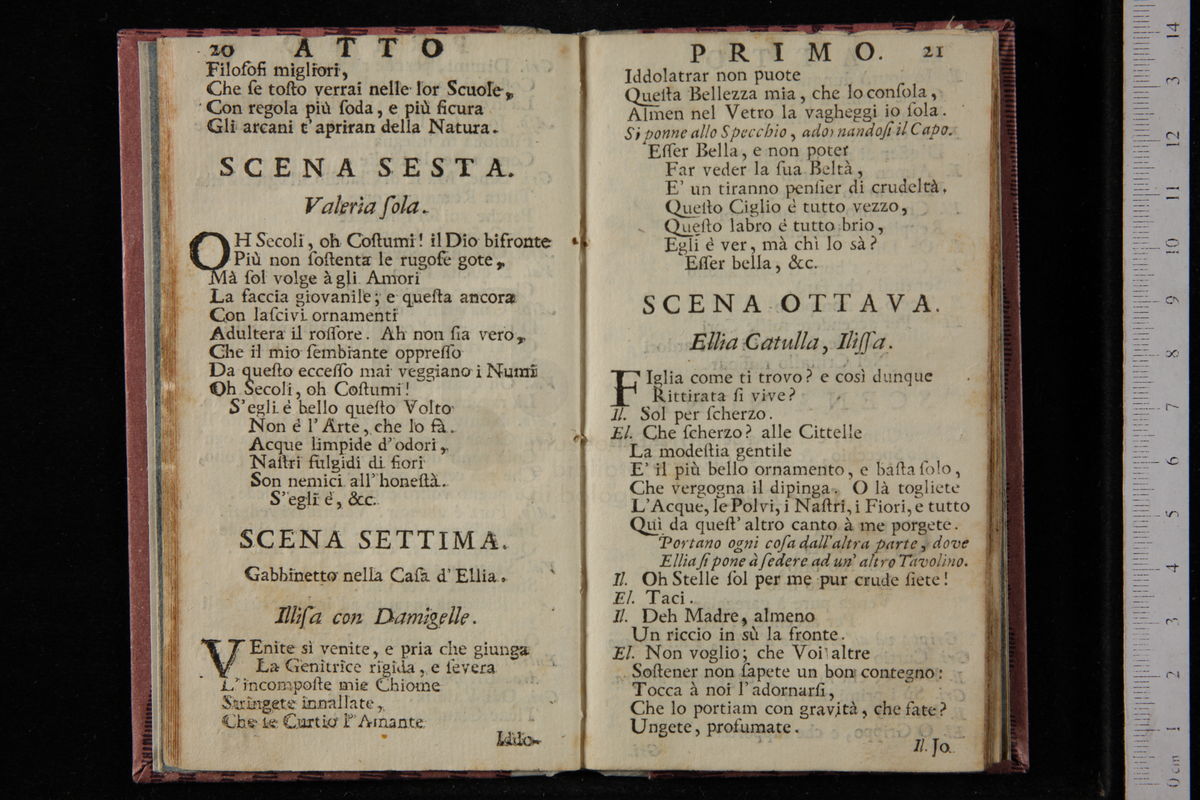 20 ATTO
Filoſofi migliori,
Che ſe toſto verrai nelle lor Scuole,
Con regola più ſoda, e più ſicura
Gli arcani t'apriran della Natura.
SCENA SESTA.
Valeria ſola.
OH Secoli, oh Coſtumi! il Dio bifronte
Più non ſoſtenta le rugoſe gote,
Mà ſol volge à gli Amori
La faccia giovanile; e queſta ancora
Con laſcivi ornamenti
Adultera il roſſore. Ah non ſia vero,
Che il mio ſembiante oppreſſo
Da queſto ecceſſo mai veggiano i Numi
Oh Secoli, oh Coſtumi!
S'egli è bello queſto Volto
Non è l'Arte, che lo fà.
Acque limpide d'odori,
Naſtri fulgidi di fiori
Son nemici all'honeſtà.
S'egli è, &c.
SCENA SETTIMA.
Gabbinetto nella Caſa d'Ellia.
Illiſa con Damigelle.
VEnite sì venite, e pria che giunga
La Genitrice rigida, e ſevera
L'incompoſte mie Chiome
Stringete innallate,
Che ſe Curtio l'Amante
Iddo-
PRIMO. 21
Iddolatrar non puote
Queſta Bellezza mia, che lo conſola,
Almen nel Vetro la vagheggi io ſola.
Si ponne allo Specchio, adornandoſi il Capo.
Eſſer Bella, e non poter
Far veder la ſua Beltà,
E' un tiranno penſier di crudeltà.
Queſto Ciglio é tutto vezzo,
Queſto labro é tutto brio,
Egli é ver, mà chì lo sà?
Eſſer bella, &c.
SCENA OTTAVA.
Ellia Catulla, Iliſſa.
FIglia come ti trovo? e così dunque
Rittirata ſi vive?
Il. Sol per ſcherzo.
El. Che ſcherzo? alle Cittelle
La modeſtia gentile
E' il più bello ornamento, e baſta ſolo,
Che vergogna il dipinga. O là togliete
L'Acque, le Polvi, i Naſtri, i Fiori, e tutto
Quì da queſt'altro canto à me porgete.
Portano ogni coſa dall'altra parte, dove
Ellia ſi pone à ſedere ad un'altro Tavolino.
Il. Oh Stelle ſol per me pur crude ſiete!
El. Taci.
Il. Deh Madre, almeno
Un riccio in sù la fronte.
El. Non voglio; che Voi altre
Soſtener non ſapete un bon contegno:
Tocca à noi l'adornarſi,
Che lo portiam con gravità, che fate?
Ungete, profumate.
Il. Jo.